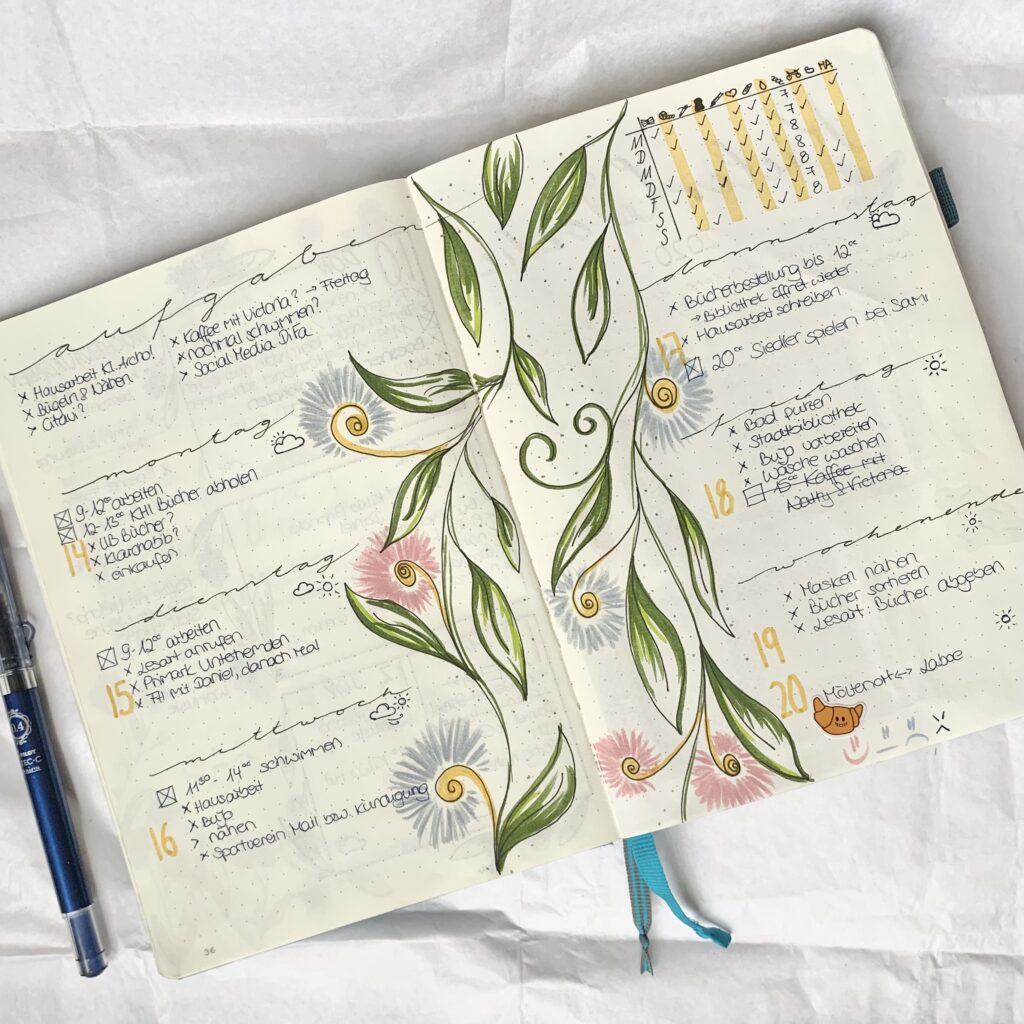 aufgaben
x Hausarbeit Kl. Archo!
x Bügeln & Nähen
> Citavi?
x Kaffee mit Victoria? → Freitag
x nochmal schwimmen?
> Social Media DiFa
montag
9-12°° arbeiten
12-13°° KHI Bücher abholen
14
x UB Bücher?
x
x einkaufen
dienstag
9-12°° arbeiten
x Lesart anrufen
x Primark Unterhemden
15
x FH mit Daniel, danach real
mittwoch
11³⁰ - 14°° schwimmen
x Hausarbeit
x Bujo
16
> nähen
x Sportverein Mail bzw. Kündigung
36
MA
M
D
M
D
F
S
S
7
7
8
8
8
7
8
donnerstag
x Bücherbestellung bis 12°°
→ Bibliothek öffnet wieder
x Hausarbeit schreiben
17
20°° Siedler spielen bei Sami
freitag
x Bad putzen
x Stadtbibliothek
x Bujo vorbereiten
x Wäsche waschen
18
15°° Kaffee mit
& Victoria
wochenende
x Masken nähen
x Bücher sortieren
x Lesart: Bücher abgeben
19
20
Möltenort <-> Laboe
0.4
PILOT
TEC-C